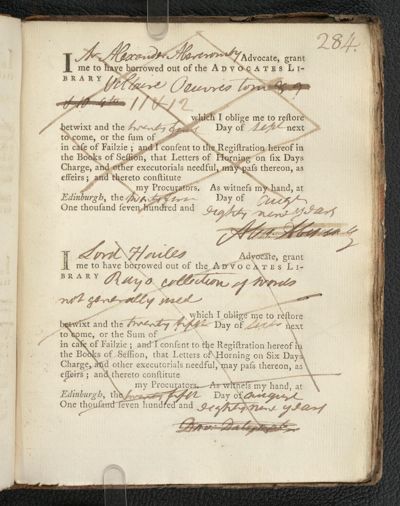 284.
I Mr Alexander Abercromby Advocate, grant
me to have borrowed out of the ADVOCATES LI-
BRARY Voltaire Oeuvres tom
11 & 12
which I oblige me to restore
betwixt and the twenty Day of Sept next
to come, or the sum of
in case of Failzie ; and I consent to the Registration hereof in
the Books of Session, that Letters of Horning on six Days
Charge, and other executorials needful, may pass thereon, as
effeirs ; and thereto constitute
my Procurators. As witness my hand, at
Edinburgh, the Day of
One thousand seven hundred and eighty nine years
I Lord Hailes Advocate, grant
me to have borrowed out of the ADVOCATES LI-
BRARY Rays collection of words
not generally used
which I oblige me to restore
betwixt and the twenty fifth Day of next
to come, or the Sum of
in case of Failzie ; and I consent to the Registration hereof in
the Books of Session, that Letters of Horning on Six Days
Charge, and other executorials needful, may pass thereon, as
effeirs ; and thereto constitute
my Procurators. As witness my hand, at
Edinburgh, the twenty fifth Day of august
One thousand seven hundred and eighty nine years
Dav: Dalrymple